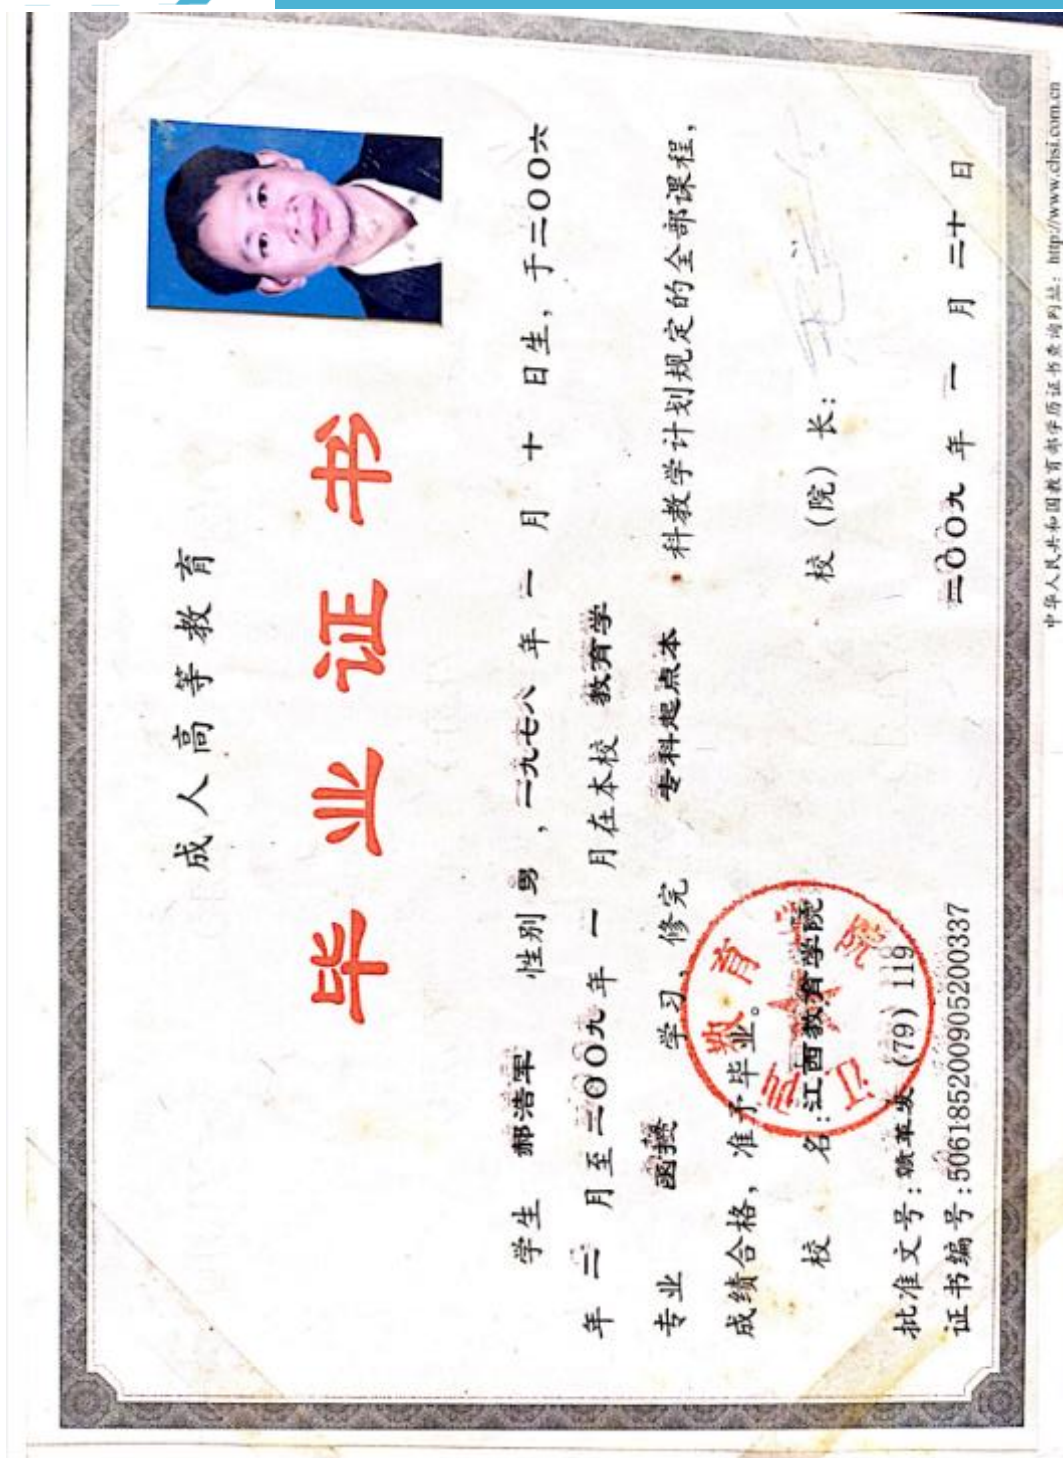 成人高等教育
毕业证书
学生 郝浩军 性别 男，一九七八年 二 月 十 日生，于二〇〇六
年 二 月至二〇〇九年 一 月在本校 教育学
专业 函授 学习，修完 专科起点本 科教学计划规定的全部课程，
成绩合格，准予毕业。
校 名：江西教育学院 校（院）长：
批准文号：赣革发（79）119
证书编号：506185200905200337 二〇〇九 年 一 月 二十 日
中华人民共和国教育部学历证书查询网址：http://www.chsi.com.cn
江西教育学院